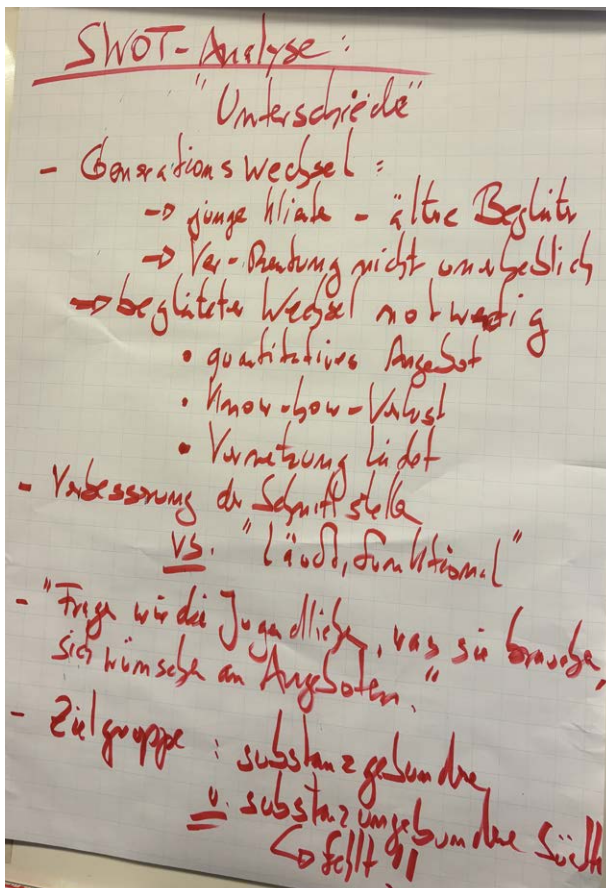 SWOT-Analyse:
"Unterschiede"
- Generationswechsel:
-> junge Kliente - ältre Begleiter
-> Ver-Rentung nicht unerheblich
-> begleiteter Wechsel notwendig
• quantitatives Angebot
• Know-how-Verlust
• Vernetzung leidet
- Verbesserung der Schnittstelle
vs. "läuft, funktional"
- "Frage wir die Jugendliche, was sie brauche,
sich wünsche an Angeboten."
- Zielgruppe: substanzgebundne
u. substanzungebundene Sücht
↳ fehlt!!